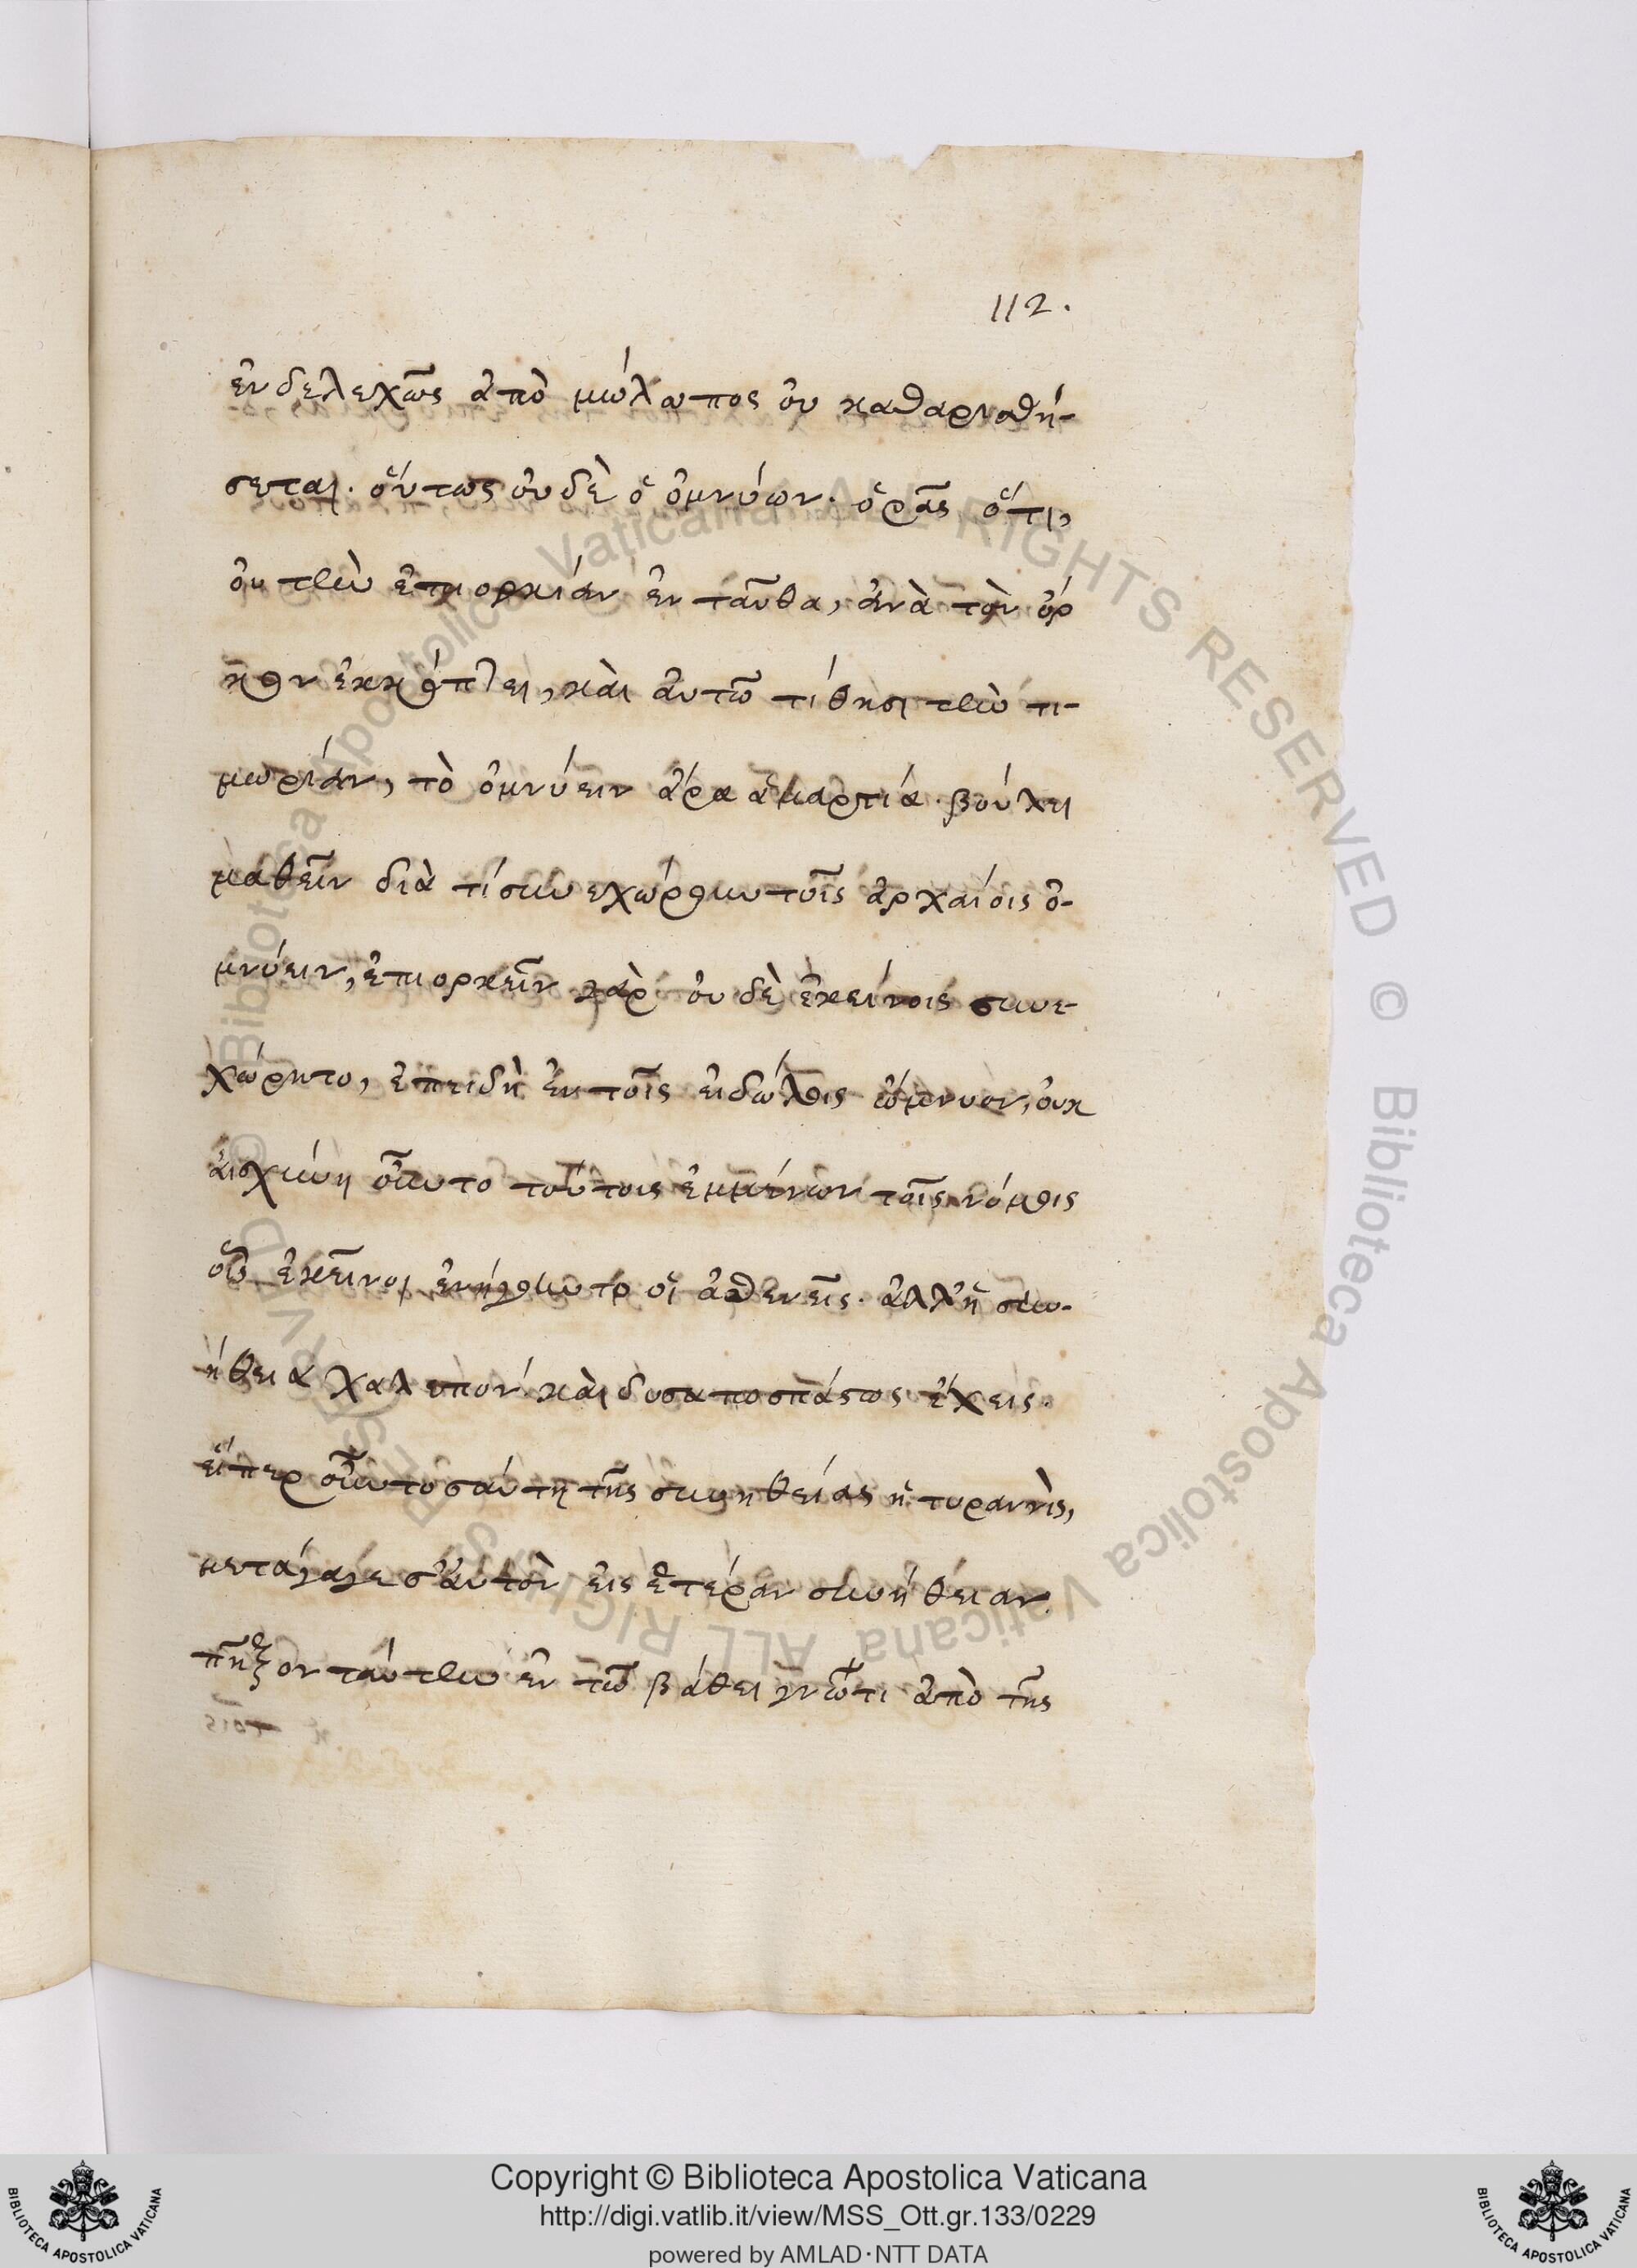 112.
ἐνδελεχῶς ἀπὸ μώλωπος οὐ καθαρισθή-
σεται. οὕτως οὐδὲ ὁ ὀμνύων. ὁρᾶς ὅτι,
οὐ τὴν ἐπιορκίαν ἐνταῦθα, ἀνὰ τὸν ὅρ
κον ἐκκόπτει, καὶ αὐτῶ τίθησι τὴν τι-
μωρίαν, τὸ ὀμνύειν ἄρα ἁμαρτία. βούλει
μαθεῖν διὰ τί συνεχώρουν τοῖς ἀρχαίοις ὀ-
μνύειν, ἐπιορκεῖν γὰρ οὐδὲ ἐκείνοις συνε-
χώρητο, ἐπειδὴ ἐν τοῖς εἰδώλοις ὤμνυον, οὐκ
αἰσχύνη τούτοις ἐμμένων τοῖς νόμοις
οἷς ἐκεῖνοι ἐνήγοντο οἱ ἀσθενεῖς. ἀλλ' ἡ συν-
ήθεια χαλεπὸν καὶ δυσαποσπάστως ἔχεις.
εἴπερ τοσαύτη τῆς συνηθείας ἡ τυραννὶς,
μετάγαγε σ'αὐτὸν εἰς ἑτέραν συνήθειαν
πῆξον ταύτην ἐν τῶ βάθει γνῶτι ἀπὸ τῆς
Copyright © Biblioteca Apostolica Vaticana
http://digi.vatlib.it/view/MSS_Ott.gr.133/0229
powered by AMLAD·NTT DATA
BIBLIOTECA APOSTOLICA VATICANA
BIBLIOTECA APOSTOLICA VATICANA
© Biblioteca Apostolica Vaticana ALL RIGHTS RESERVED
© Biblioteca Apostolica Vaticana ALL RIGHTS RESERVED